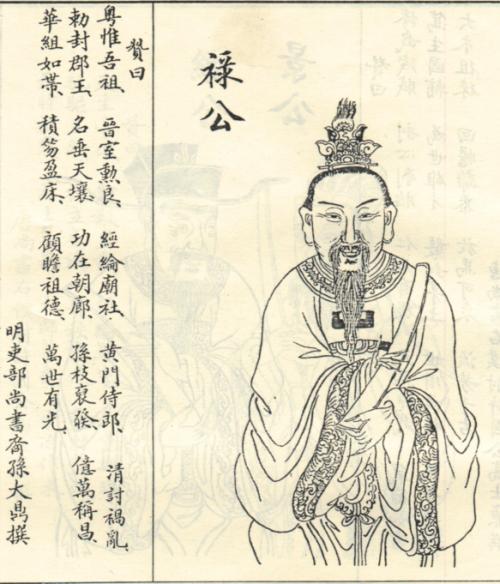 祿公
贊曰
粵惟吾祖、晉室勳良、經綸廟社、黃門侍郎、清討禍亂、
勅封郡王、名垂天壤、功在朝廊、孫枝、億萬稱昌、
華組如帶、積笏盈床、顧瞻祖德、萬世有光、
明吏部尚書裔孫大鼎撰